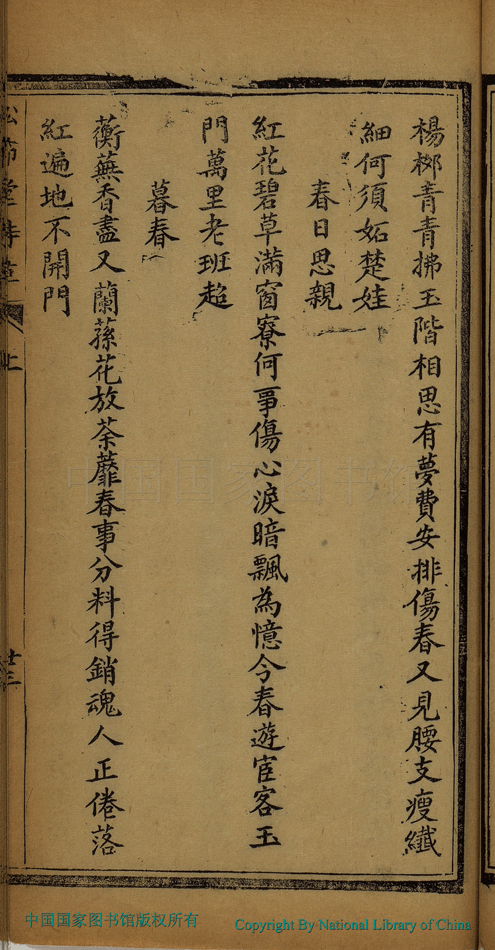 楊栁青青拂玉階相思有夢費安排傷春又見腰支瘦纖
細何須妬楚娃
春日思親
紅花碧草滿窗寮何事傷心淚暗飄為憶今春遊宦客玉
門萬里老班超
暮春
蘅蕪香盡又蘭蓀花放荼蘼春事分料得銷魂人正倦落
紅遍地不開門
上
廿三
中国国家图书馆
中国国家图书馆版权所有
Copyright By National Library of China